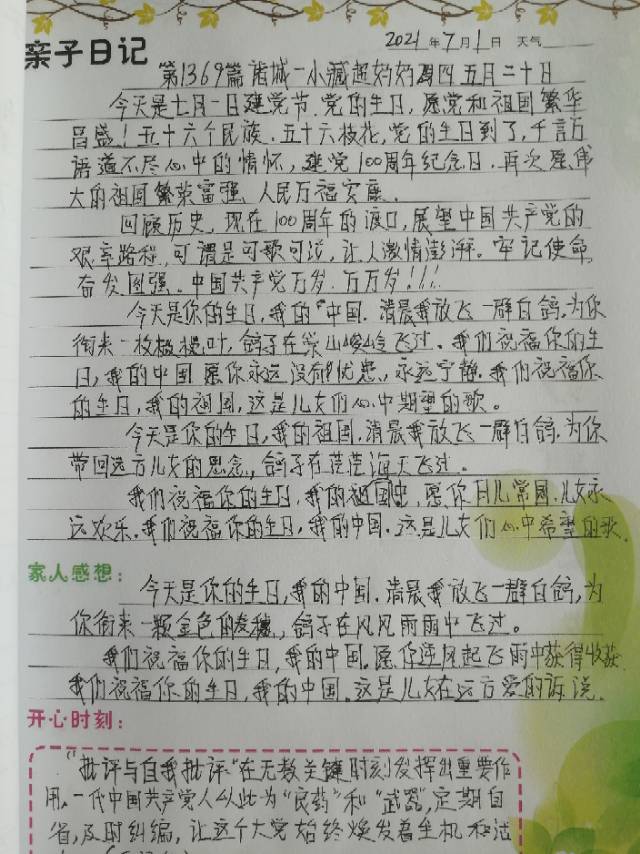 亲子日记
2021年7月1日 天气
第1369篇 诸城一小臧超妈妈 周四 五月二十日
今天是七月一日建党节.党的生日,愿党和祖国繁华
昌盛!五十六个民族.五十六枝花,党的生日到了,千言万
语道不尽心中的情怀,建党100周年纪念日.再次愿伟
大的祖国繁荣富强.人民万福安康.
回顾历史,现在100周年的渡口,展望中国共产党的
艰辛路程,可谓是可歌可泣,让人激情澎湃。牢记使命,
奋发图强.中国共产党万岁.万万岁!!!
今天是你的生日,我的中国.清晨我放飞一群白鸽.为你
衔来一枚橄榄叶,鸽子在崇山峻岭飞过.我们祝福你的生
日,我的中国.愿你永远没有忧患,永远宁静.我们祝福你
的生日,我的祖国,这是儿女们心中期望的歌。
今天是你的生日,我的祖国.清晨我放飞一群白鸽.为你
带回远方儿女的思念,鸽子在茫茫海天飞过.
我们祝福你的生日,我的祖国,愿你月儿常圆.儿女永
远欢乐.我们祝福你的生日,我的中国.这是儿女们心中希望的歌.
家人感想:
今天是你的生日,我的中国.清晨我放飞一群白鸽,为
你衔来一颗金色的麦穗,鸽子在风风雨雨中飞过。
我们祝福你的生日,我的中国.愿你逆风起飞雨中获得收获
我们祝福你的生日,我的中国.这是儿女在远方爱的诉说.
开心时刻:
"批评与自我批评"在无数关键时刻发挥出重要作
用.一代中国共产党人以此为"良药"和"武器",定期自
省,及时纠编,让这个大党始终焕发着生机和活